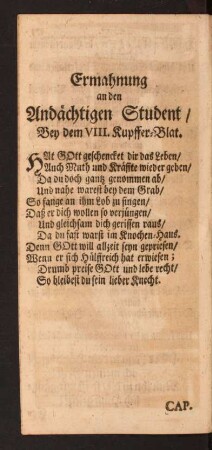 Ermahnung
an den
Andächtigen Student /
Bey dem VIII. Kupffer-Blat.
HAt GOtt geschencket dir das Leben /
Auch Muth und Kräffte wieder geben /
Da du doch gantz genommen ab /
Und nahe warest bey dem Grab /
So fange an ihm Lob zu singen /
Daß er dich wollen so verjüngen /
Und gleichsam dich gerissen raus /
Da du fast warst im Knochen-Haus.
Denn GOtt will allzeit seyn gepriesen /
Wenn er sich Hülffreich hat erwiesen ;
Drumb preise GOtt und lebe recht /
So bleibest du sein lieber Knecht.
CAP.